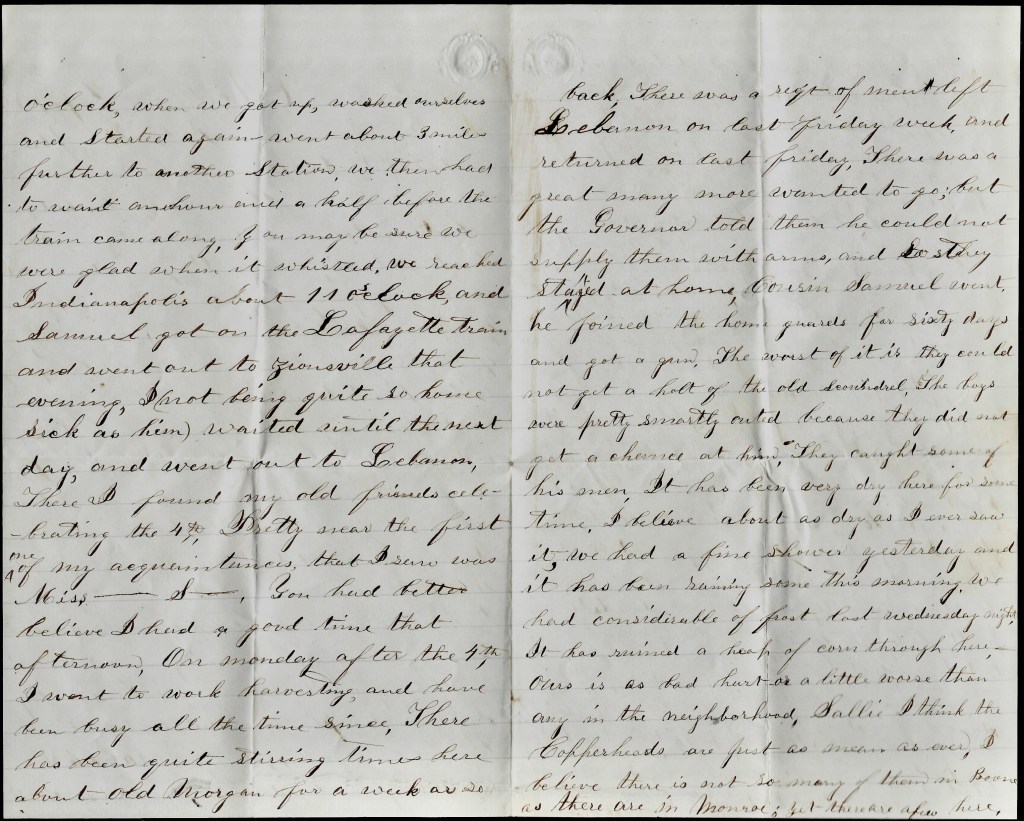 o'clock, when we got up, washed ourselves
and Started again — went about 3 miles
further to another Station, we then had
to wait an hour and a half before the
train came along, You may be sure we
were glad when it whistled, we reached
Indianapolis about 11 o'clock, and
Samuel got on the Lafayette train
and went out to Zionsville that
evening, I (not being quite so home
sick as him) waited until the next
day, and went out to Lebanon,
There I found my old friends cele-
-brating the 4th, Pretty near the first
one
of my acquaintances, that I saw was
Miss — S —, You had better
believe I had a good time that
afternoon, On monday after the 4th,
I went to work harvesting, and have
been busy all the time since, There
has been quite stirring times here
about old Morgan for a week or so
back, There was a regt of men left
Lebanon on last Friday week, and
returned on last friday, There was a
great many more wanted to go; but
the Governor told them he could not
supply them with arms, and so they
stayed at home, Cousin Samuel went,
he joined the home guards for sixty days
and got a gun, The worst of it is they could
not get a holt of the old scoundrel, The boys
were pretty smartly outed because they did not
get a chance at him, They caught some of
his men, It has been very dry here for some
time, I believe about as dry as I ever saw
it, we had a fine shower yesterday and
it has been raining some this morning, We
had considerable of frost last wednesday night,
It has ruined a heap of corn through here, —
Ours is as bad hurt or a little worse than
any in the neighborhood, Sallie I think the
Copperheads are just as mean as ever, I
believe there is not so many of them in Boone
as there are in Monroe; yet there are a few here,